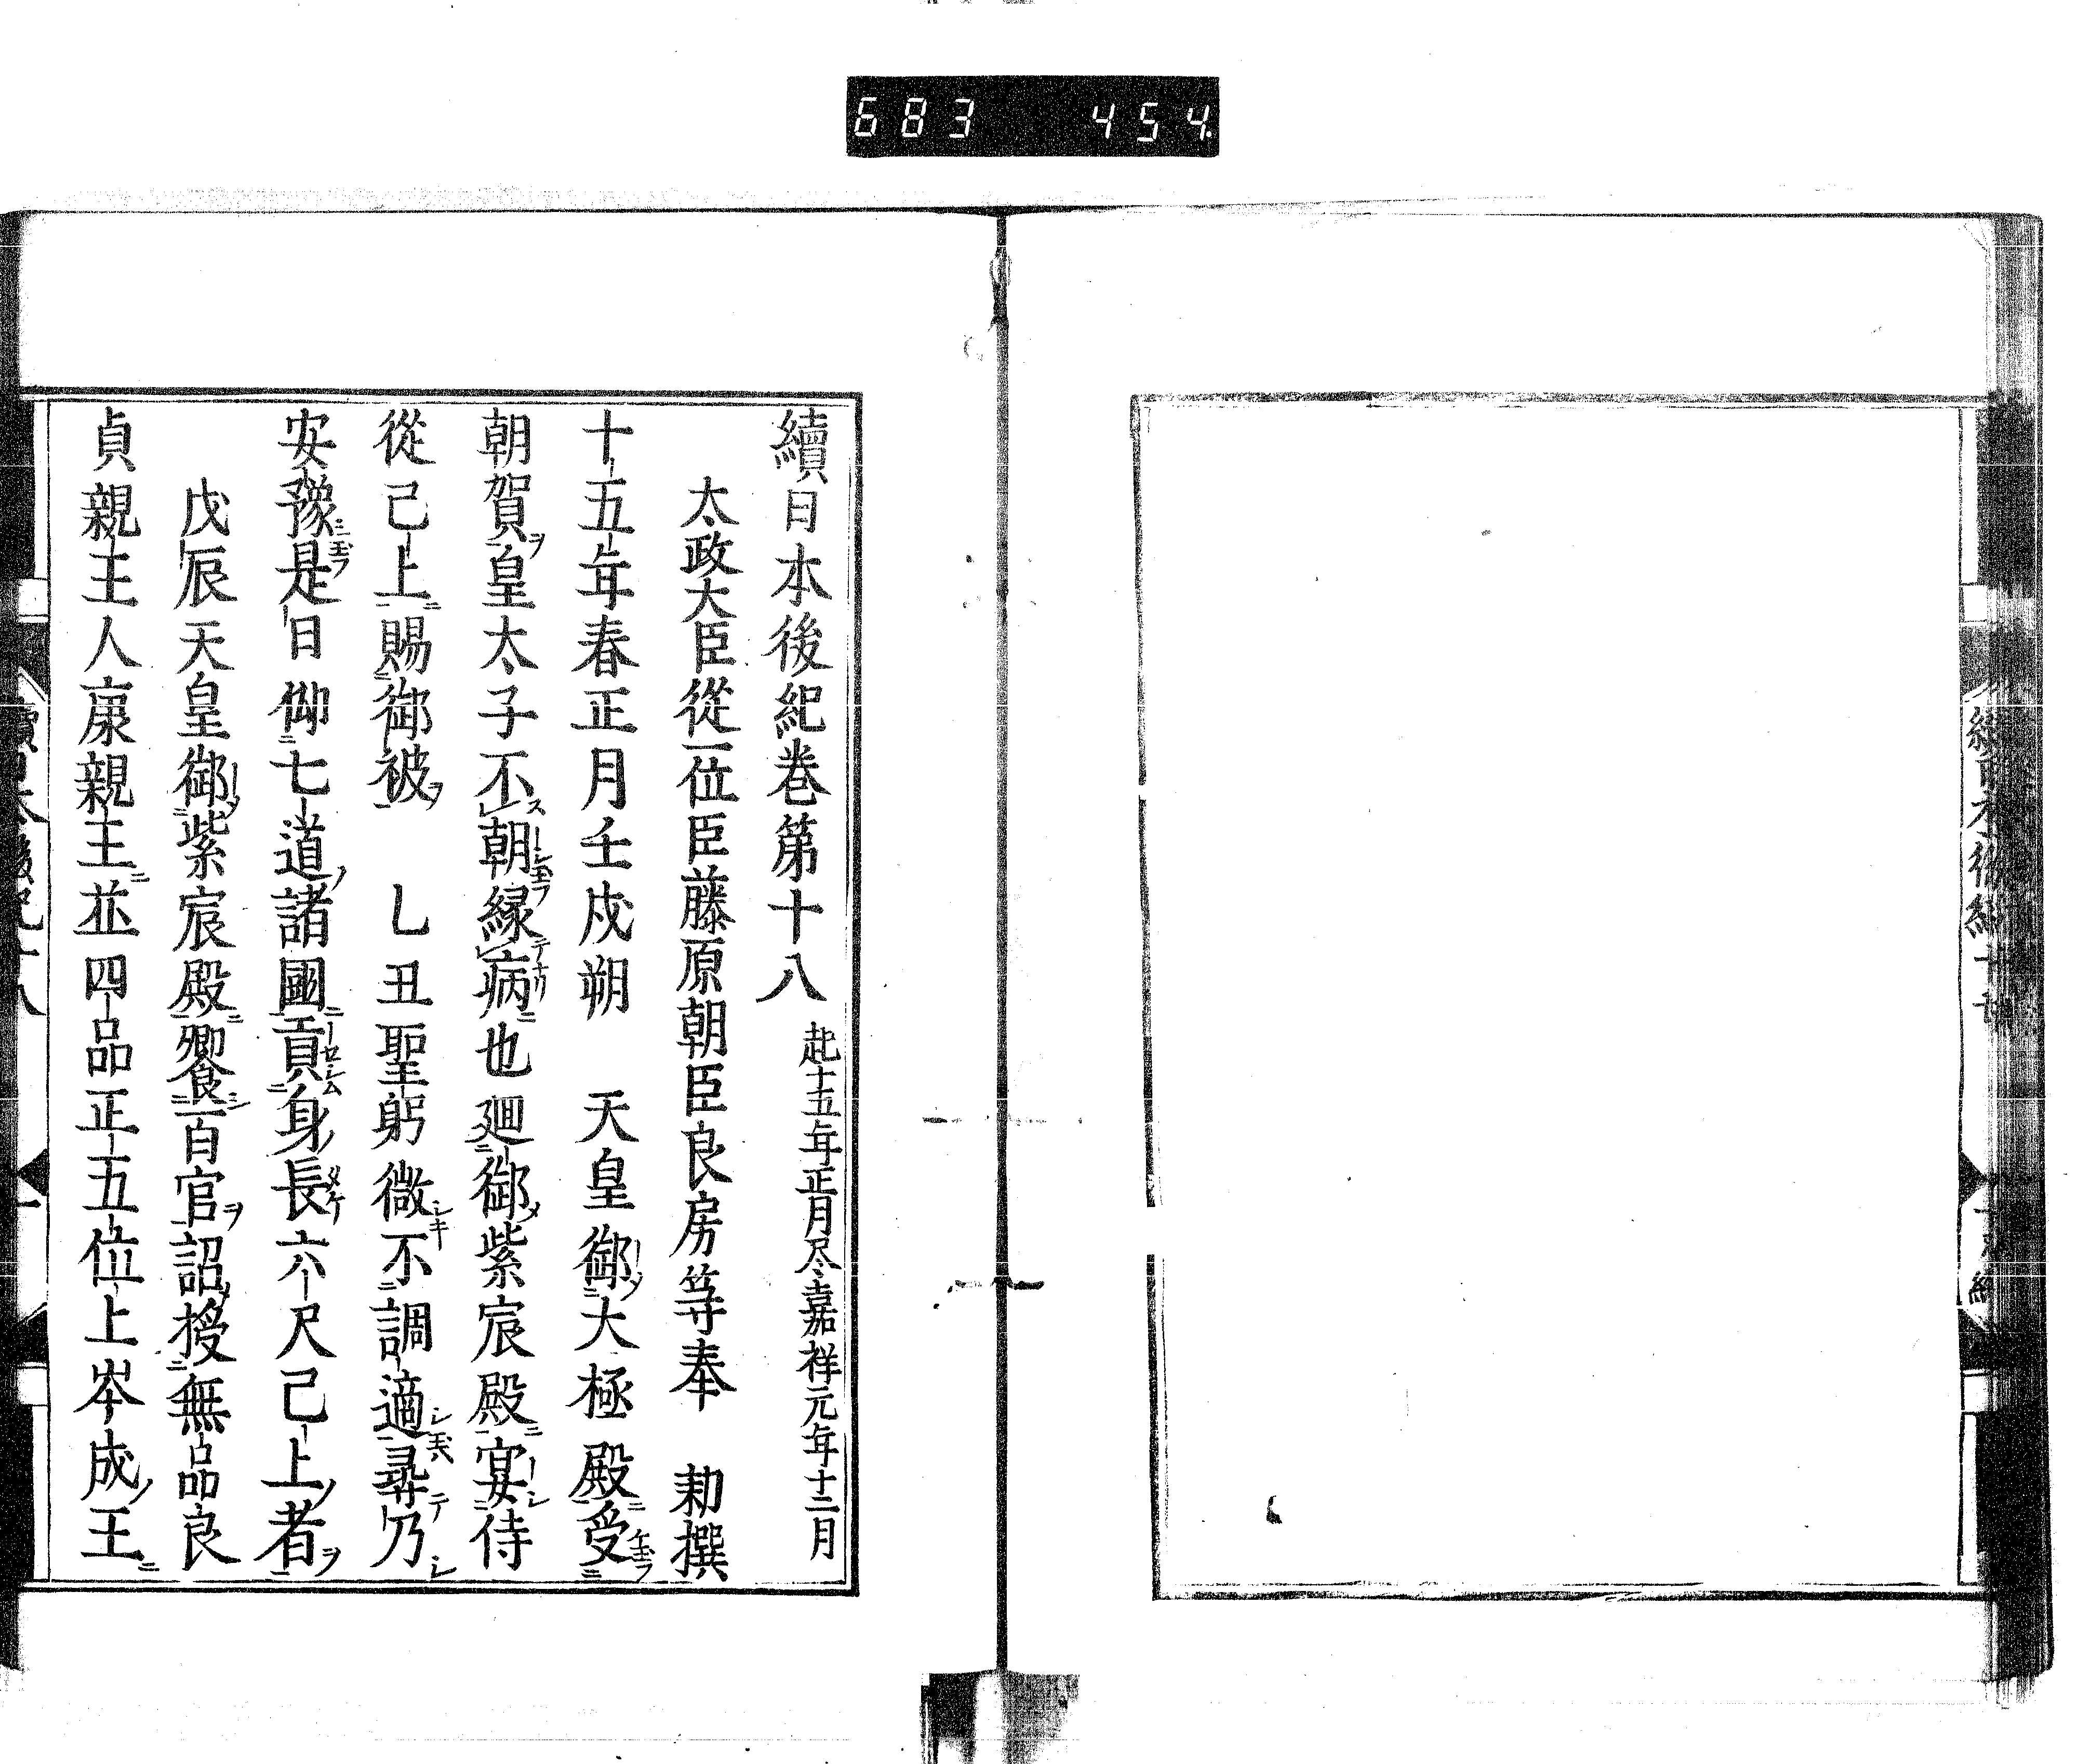 683 454
續日本後紀巻第十八 起十五年正月尽嘉祥元年十二月
太政大臣從一位臣藤原朝臣良房等奉 勅撰
十五年春正月壬戌朔 天皇御大極殿受
朝賀皇太子不朝縁病也廻御紫宸殿宴侍
從已上賜御被 乙丑聖躬微不調適尋乃
安豫是日仰七道諸國貢身長六尺已上者
戊辰天皇御紫宸殿饗百官詔授無品良
貞親王人康親王並四品正五位上岑成王